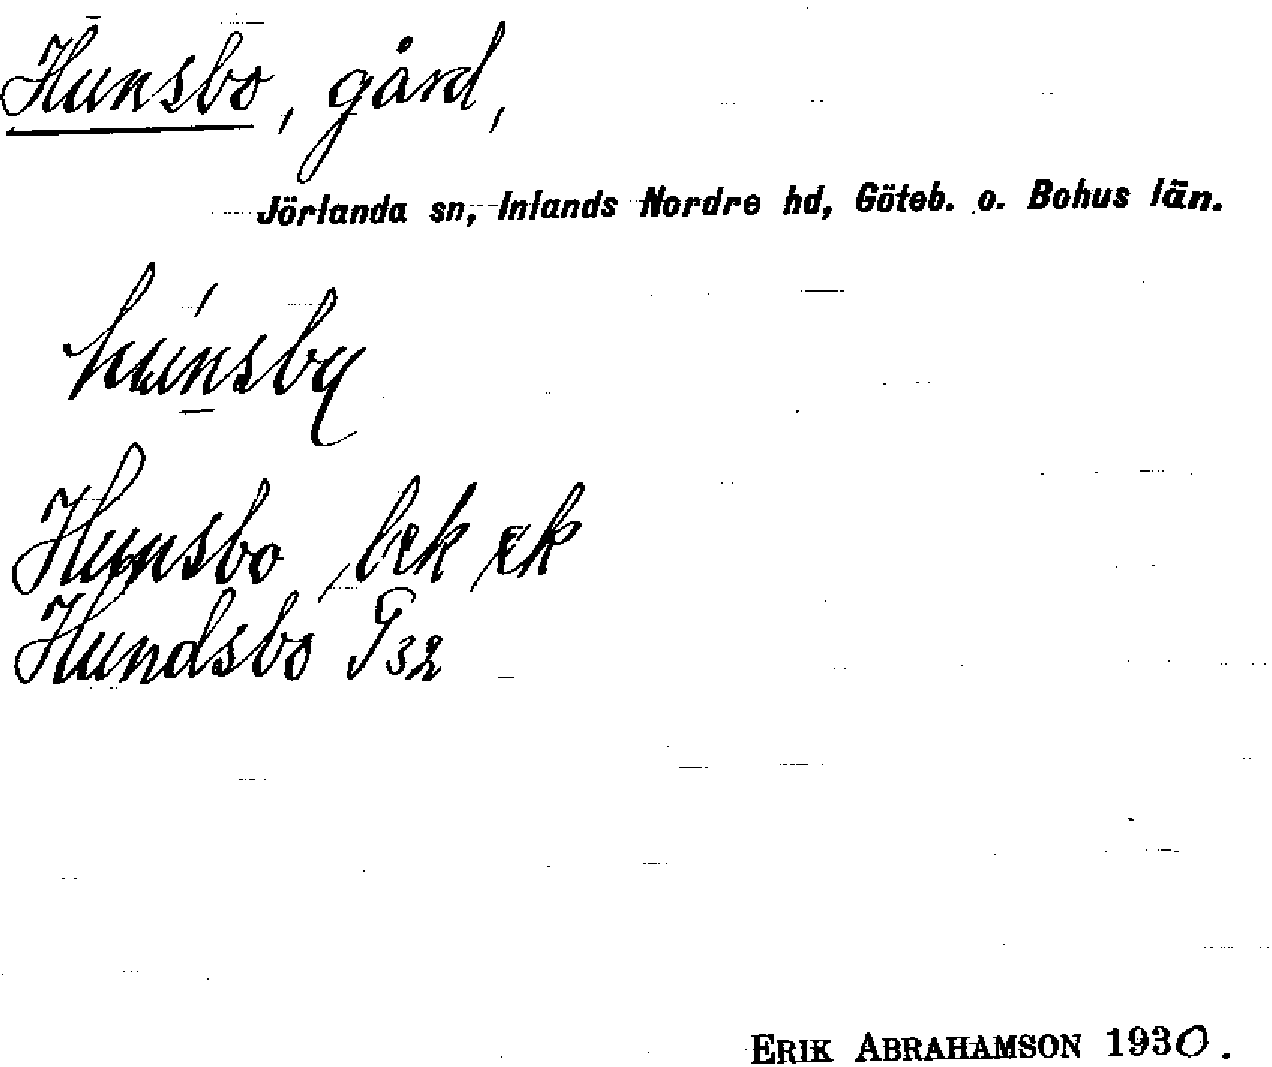 Hunsbo, gård,
Jörlanda sn, Inlands Nordre hd, Göteb. o. Bohus län.
hu̍nsby
Hunsbo, bek, ek
Hundsbo J32
ERIK ABRAHAMSON 1930.